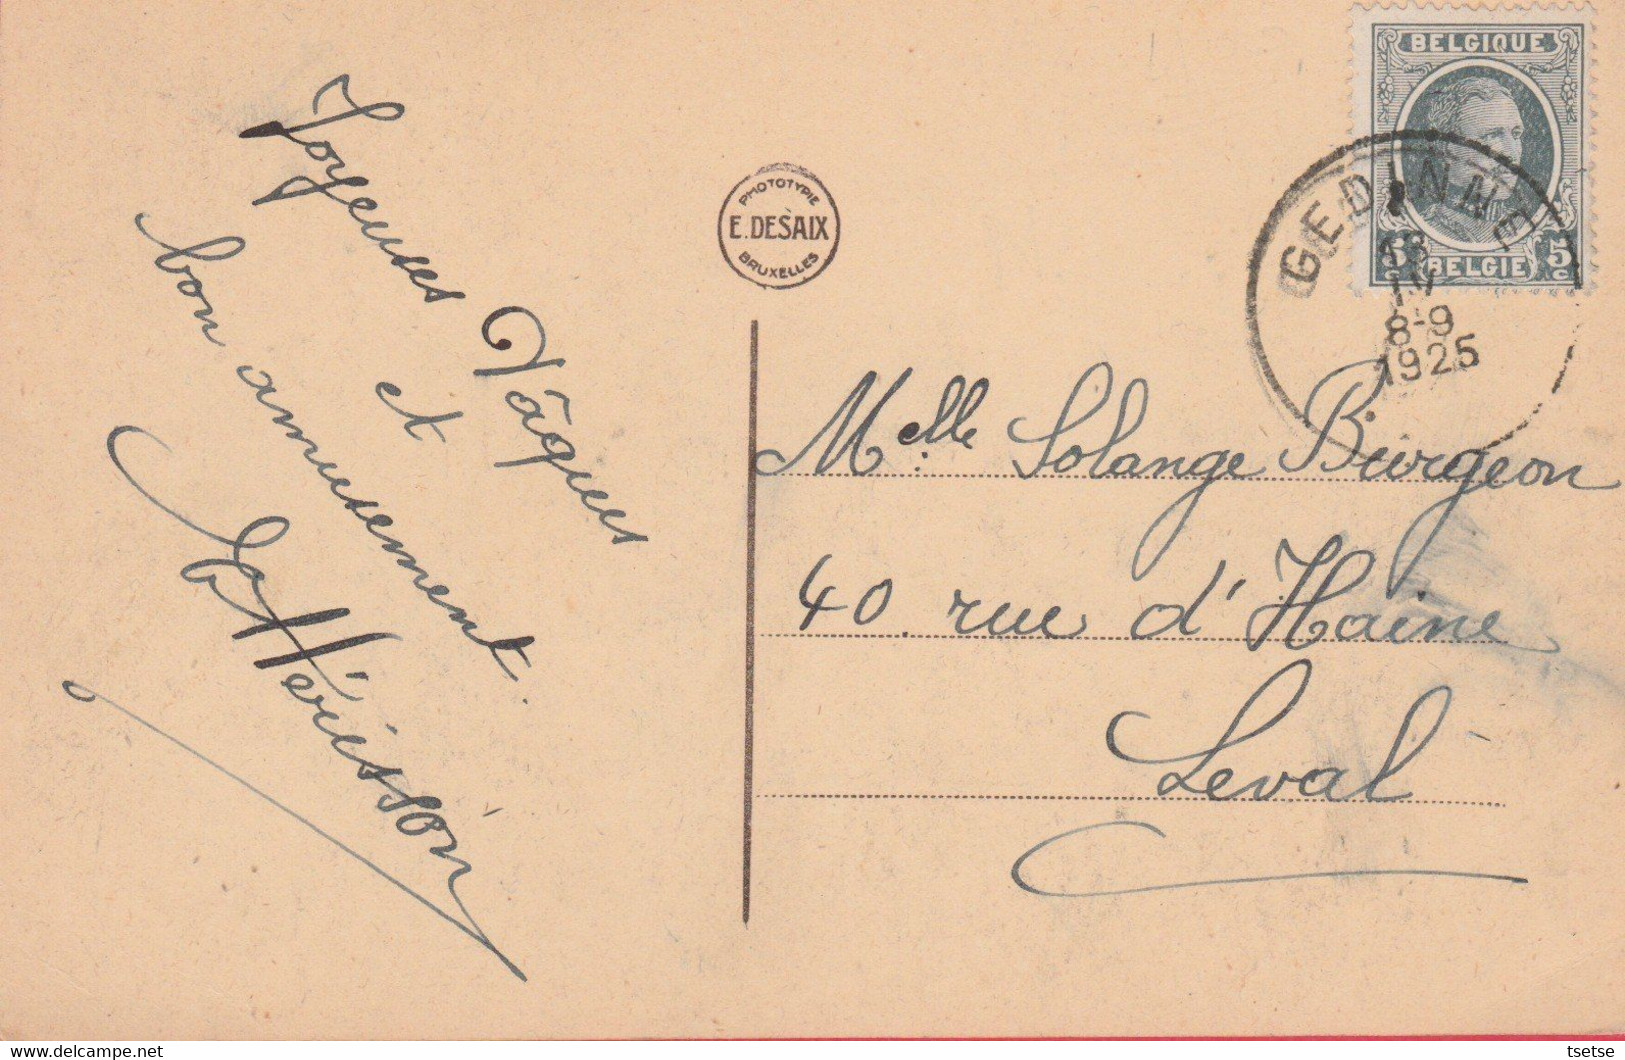 Joyeuses Pâques
et
bon amusement.
Hérisson
PHOTOTYPIE
E. DESAIX
BRUXELLES
BELGIQUE
5c 5c
BELGIE
GEDINNE
IV
8-9
1925
Melle Solange Burgeon
40. rue d'Haine
Leval
tsetse